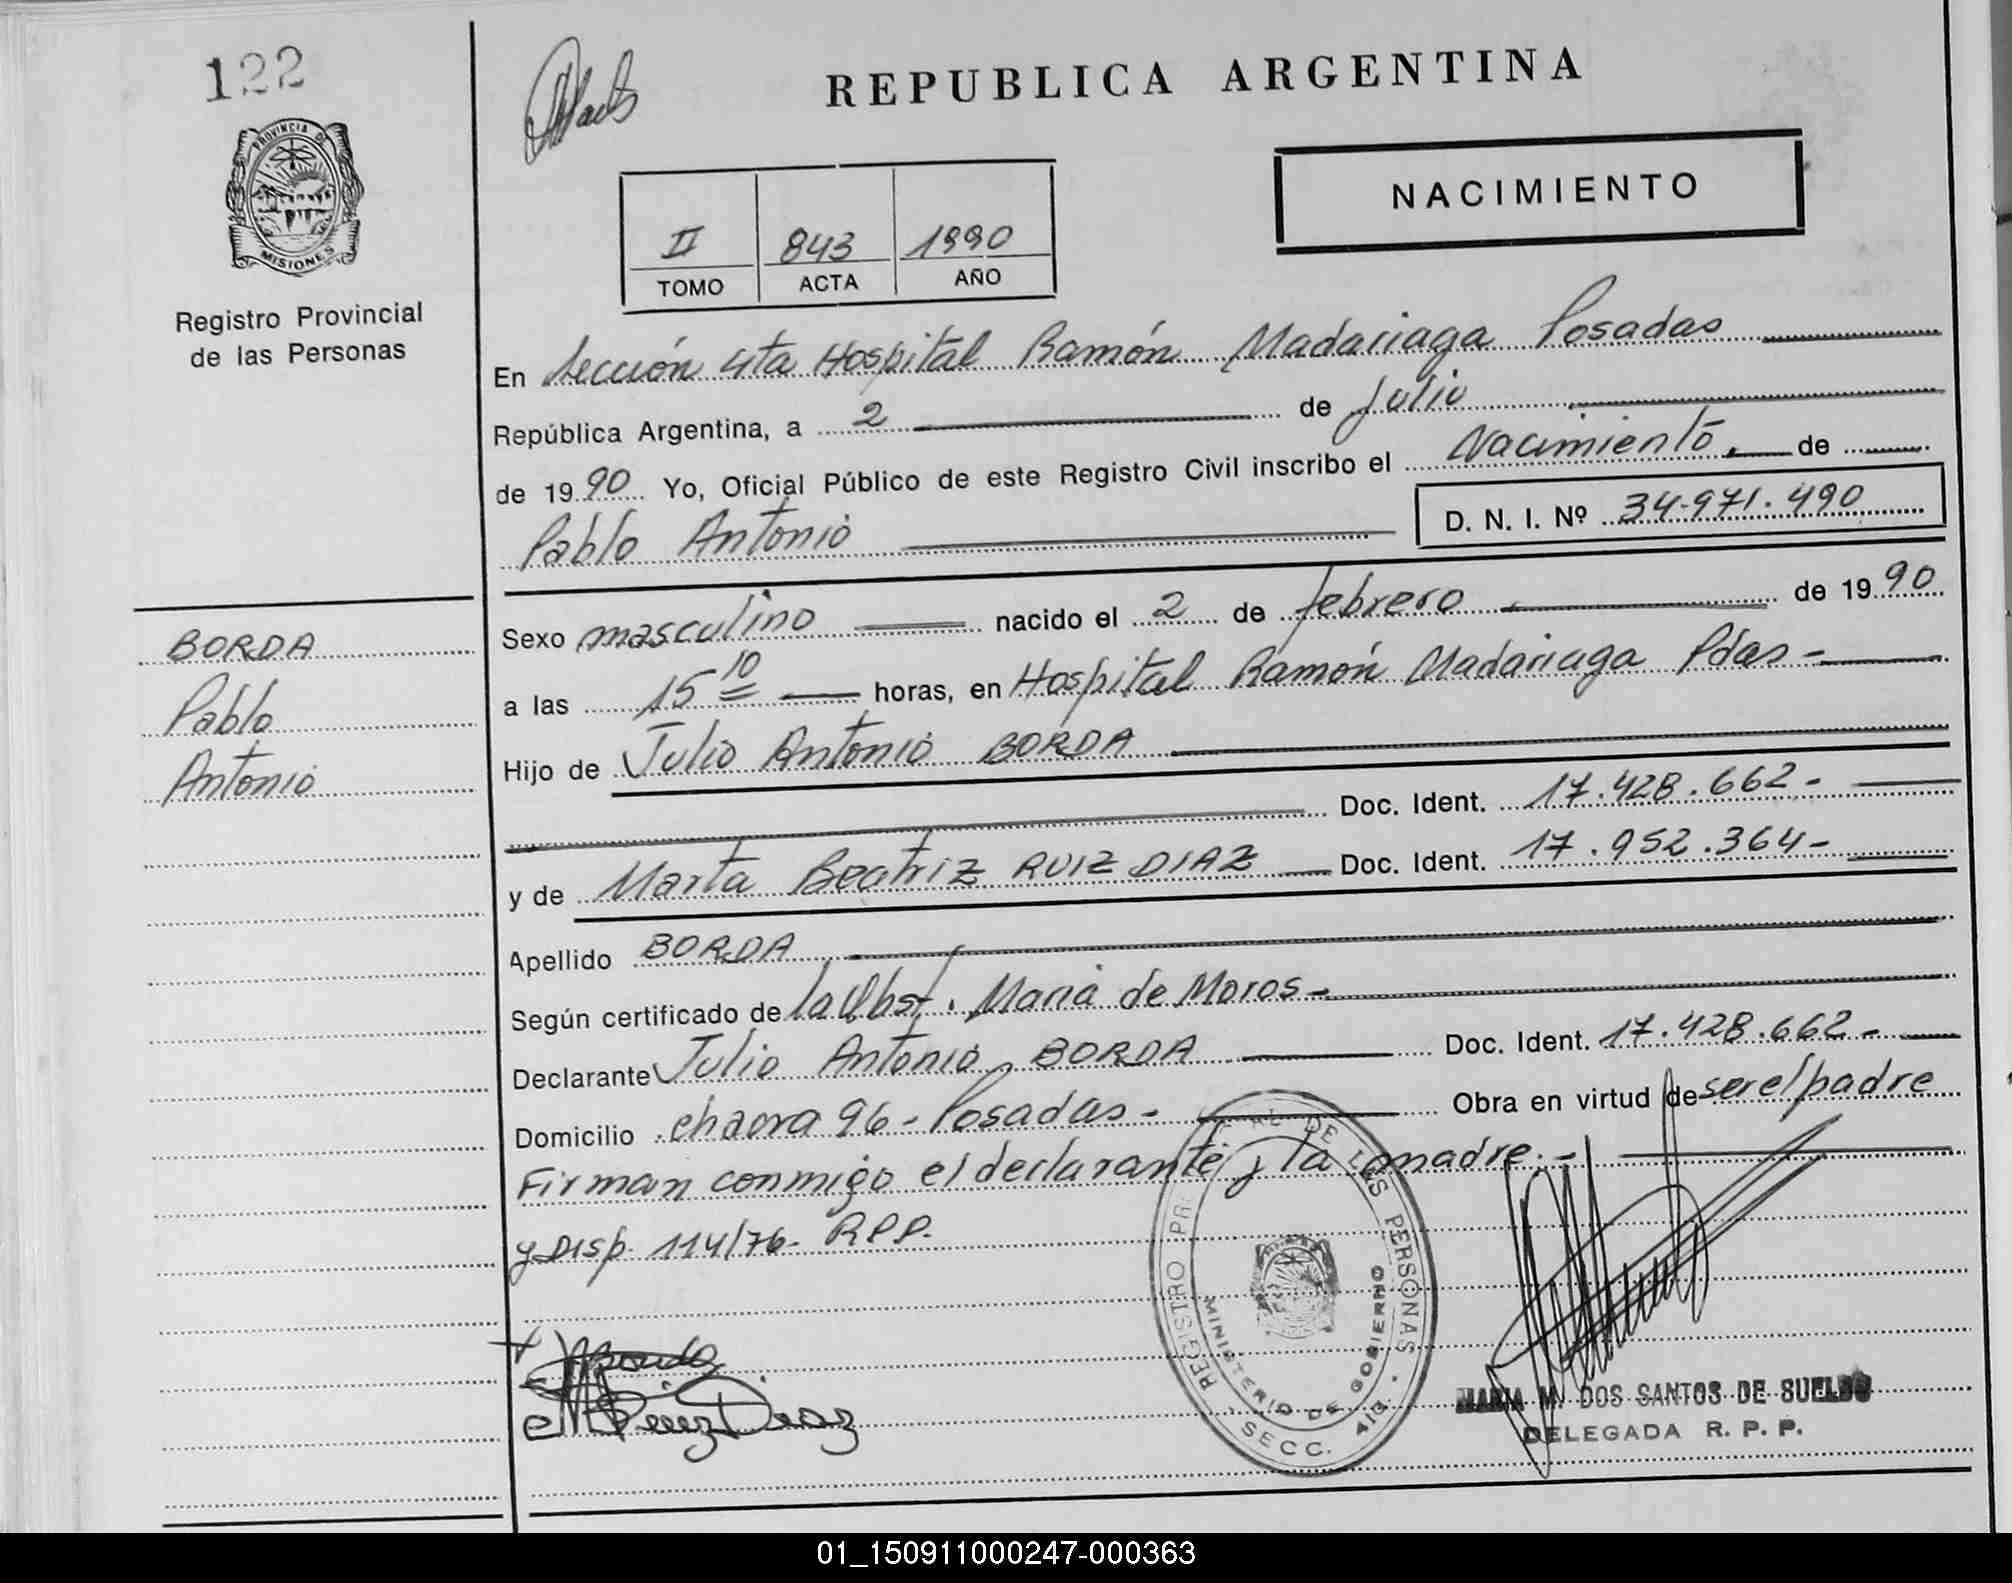 122
REPUBLICA ARGENTINA
PROVINCIA DE
MISIONES
Registro Provincial
de las Personas
NACIMIENTO
II 843 1990
TOMO ACTA AÑO
En Sección 4ta Hospital Ramón Madariaga Posadas
República Argentina, a 2 de Julio
de 1990 Yo, Oficial Público de este Registro Civil inscribo el Nacimiento. de
Pablo Antonio D. N. I. Nº 34.971.490
BORDA
Pablo
Antonio
Sexo masculino nacido el 2 de febrero de 1990
a las 15 10 horas, en Hospital Ramón Madariaga Pdas-
Hijo de Julio Antonio BORDA
Doc. Ident. 17.428.662-
y de Marta Beatriz RUIZ DIAZ Doc. Ident. 17.952.364-
Apellido BORDA
Según certificado de la Obst. Maria de Moros-
Declarante Julio Antonio BORDA Doc. Ident. 17.428.662-
Domicilio chacra 96-Posadas- Obra en virtud de ser el padre
Firman conmigo el declarante y la madre.-
y Disp. 114/76- RPP.
REGISTRO PR AL DE LAS PERSONAS
MINISTERIO DE GOBIERNO
SECC. 4ta.
MARIA M. DOS SANTOS DE SUELDO
DELEGADA R. P. P.
01_150911000247-000363